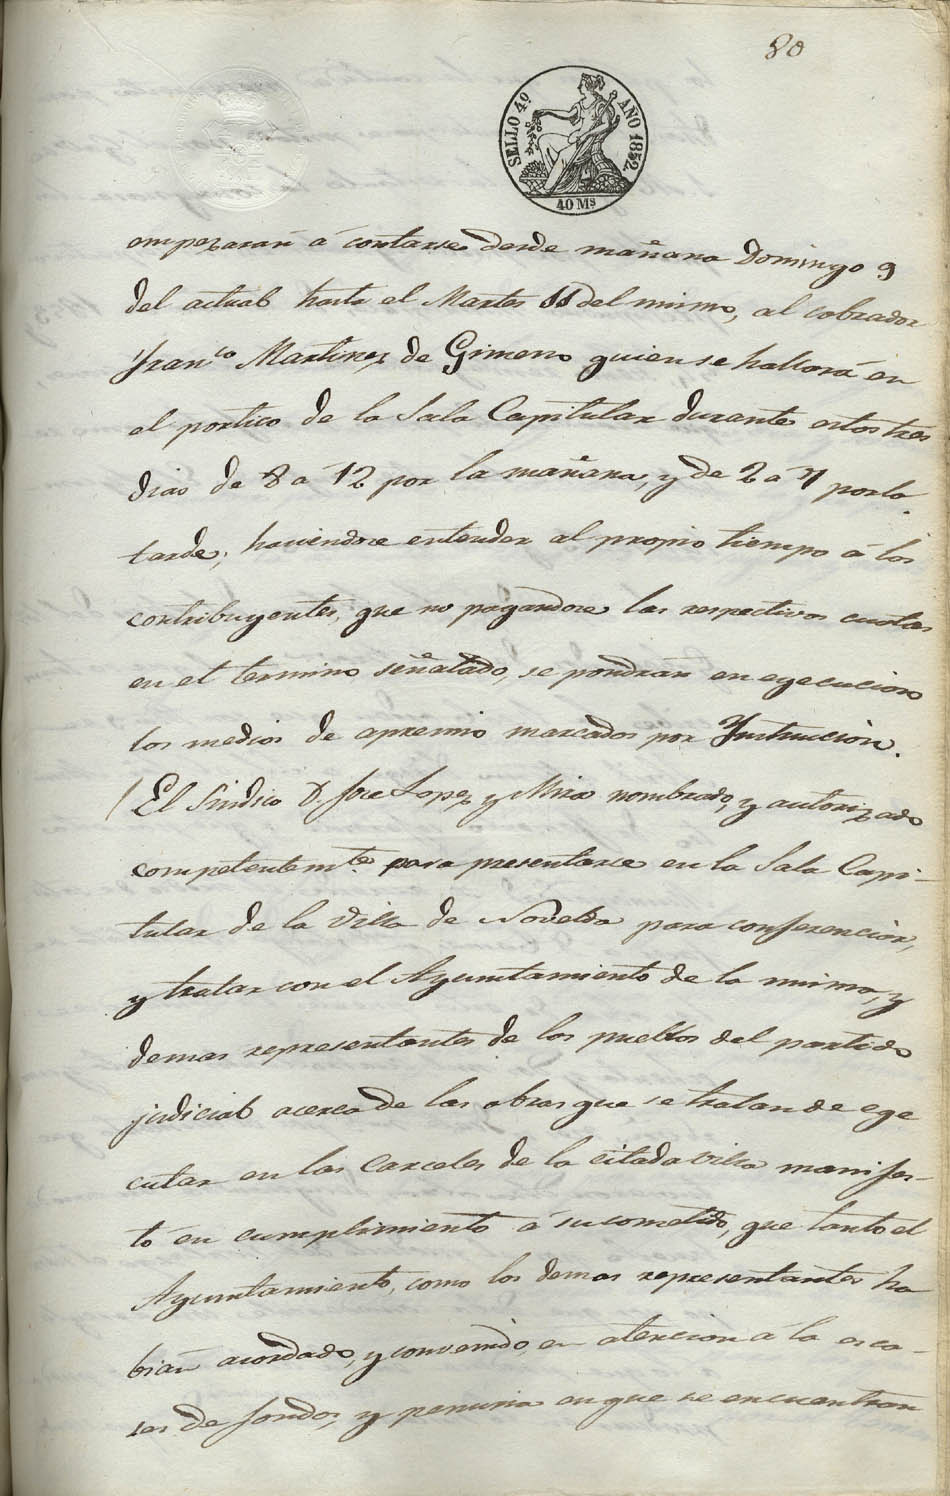 80
SELLO 4º AÑO 1852
40 Ms
empezaran á contarse desde mañana Domingo 9
del actual hasta el Martes 11 del mismo, al cobrador
Franco Martinez de Gimeno quien se hallará en
el portico de la Sala Capitular durante estos tres
dias de 8 a 12 por la mañana, y de 2 a 7 por la
tarde; haciendose entender al propio tiempo á los
contribuyentes, que no pagandose las respectivas cuotas
en el termino señalado, se pondran en egecucion
los medios de apremio marcados por Ynstruccion.
El Sindico D. Jose Lopez y Mira nombrado, y autorizado
competentemte. para presentarse en la Sala Capi-
tular de la Villa de Novelda para conferenciar,
y tratar con el Ayuntamiento de la misma, y
demas representantes de los pueblos del partido
judicial acerca de las obras que se tratan de ege
cutar en las Carceles de la citada villa manifes-
tó en cumplimiento á su cometido, que tanto el
Ayuntamiento, como los demas representantes ha
bian acordado, y convenido, en atencion á la esca-
ses de fondos, y penuria en que se encuentran